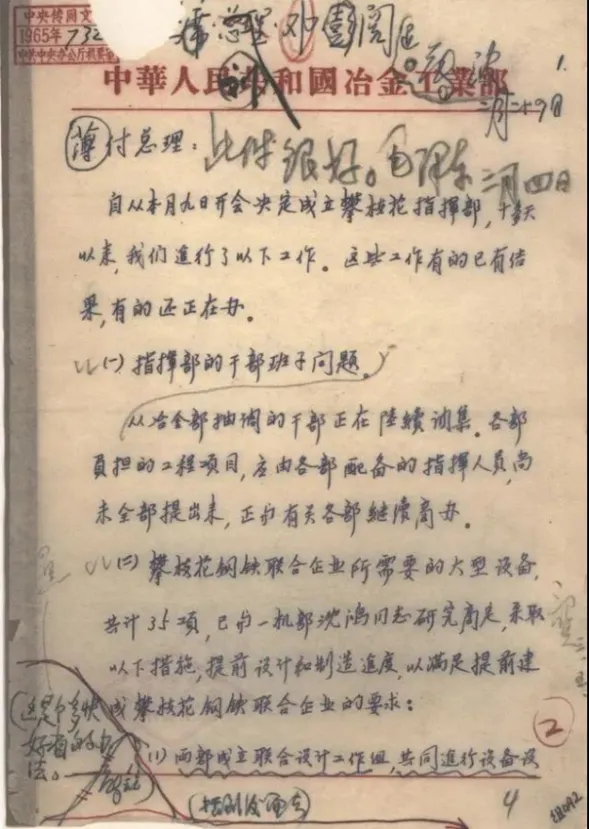 1965年
中華人民共和國冶金工業部
1.
二月二十九日
薄付总理:
此件很好。毛泽东 三月四日
自从本月九日开会决定成立攀枝花指挥部,十多天
以来,我们進行了以下工作。这些工作有的已有结
果,有的还正在办。
(一)指挥部的干部班子问题。
从冶金部抽调的干部正在陸續调集。各部
負担的工程项目,应由各部配备的指挥人员,尚
未全部提出来,正与有关各部継續商办。
(二)攀枝花钢铁联合企业所需要的大型设备,
共计35項,已与一机部沈鸿同志研究商定,采取
以下措施,提前设计和制造進度,以满足提前建
成攀枝花钢铁联合企业的要求:
(1)两部成立联合设计工作组,共同進行设备设
(这是个多快
好省的办
法。
②
4